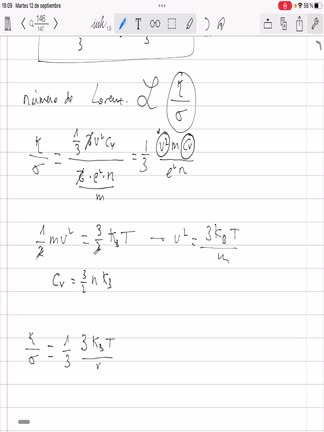 19:09 Martes 12 de septiembre
58 %
146
147
3 3
número de Lorenz. L K/σ
K/σ = (1/3 τ v² Cv)/(τ·e²·n/m) = 1/3 (v² m Cv)/(e² n)
1/2 mv² = 3/2 K_B T → v² = 3K_B T/m
Cv = 3/2 n K_B
K/σ = 1/3 3 K_B T